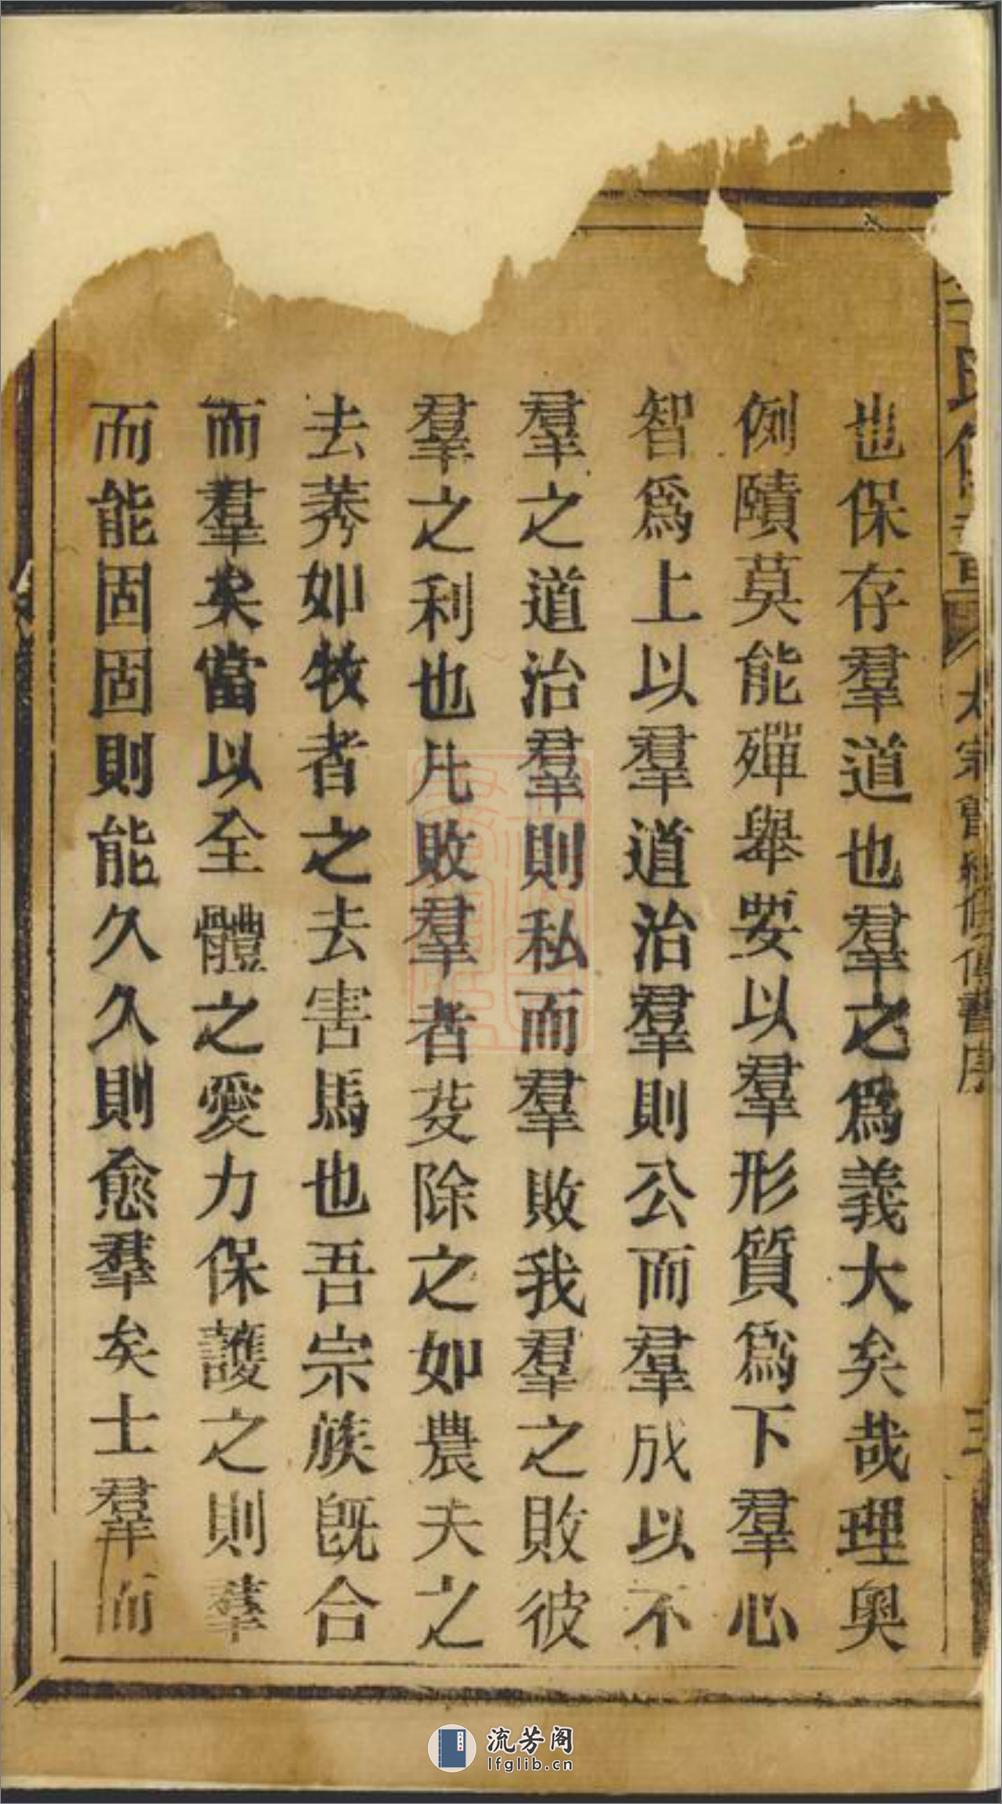 氏
大宗會總修傳書序
三
也保存羣道也羣之爲義大矣哉理奥
例賾莫能殫舉要以羣形質爲下羣心
智爲上以羣道治羣則公而羣成以不
羣之道治羣則私而羣敗我羣之敗彼
羣之利也凡敗羣者芟除之如農夫之
去莠如牧者之去害馬也吾宗族旣合
而羣矣當以全體之愛力保護之則羣
而能固固則能久久則愈羣矣士羣而
流芳阁
lfglib.cn